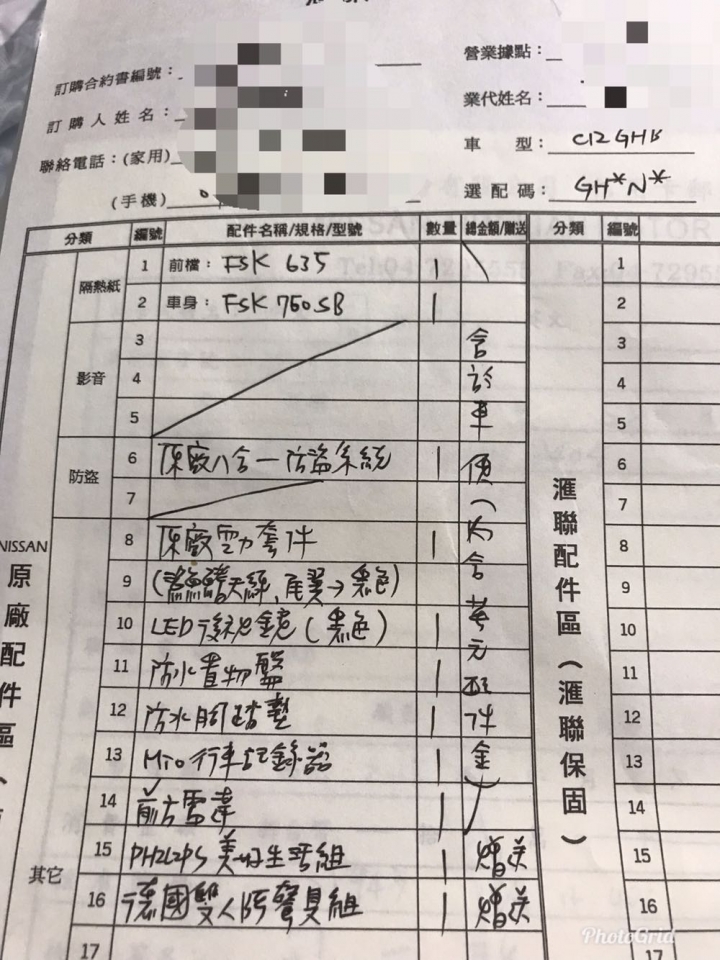 訂購合約書編號：
營業據點：
訂購人姓名：
業代姓名：
聯絡電話：(家用)
車 型： C12 GHB
(手機) 0
選配碼： GH*N*
分類 編號 配件名稱/規格/型號 數量 總金額/贈送 分類 編號
隔熱紙 1 前檔： FSK 635 1 1
2 車身： FSK 760SB 1 2
影音 3 含 3
4 於 4
5 車 5
防盜 6 原廠八合一防盜系統 1 價 6
7 ( 7
NISSAN 原廠配件區 其它 8 原廠空力套件 1 內 8
9 (鯊魚鰭天線、尾翼→黑色) 含 9
10 LED後視鏡(黑色) 1 萬 10
11 防水置物盤 1 元 11
12 防水腳踏墊 1 配件 12
13 Mio 行車記錄器 1 金 13
14 前方雷達 1 ) 14
15 PHILIPS 美好生活組 1 贈送 15
16 德國雙人牌餐具組 1 贈送 16
17 17
滙聯配件區(滙聯保固)
PhotoGrid